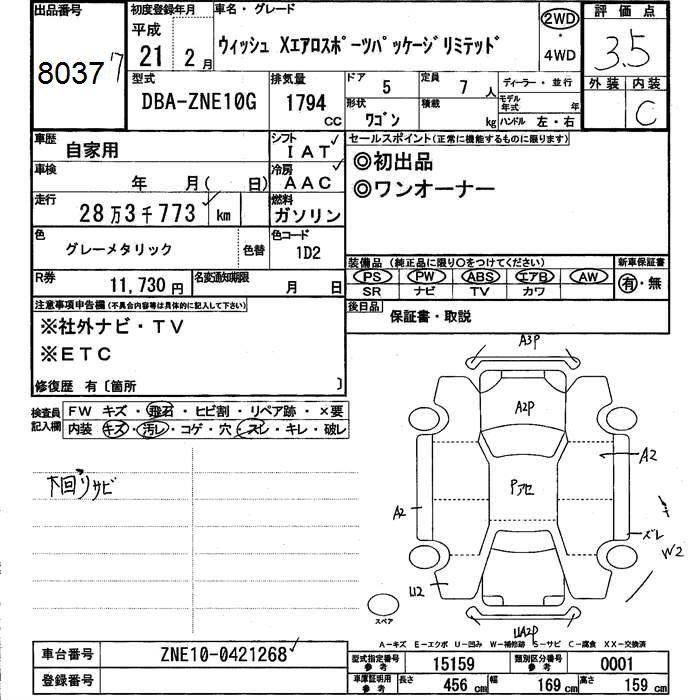 出品番号 初度登録年月 車名・グレード 評価点
80377 平成 21 2月 ウィッシュ Xエアロスポーツパッケージリミテッド 2WD・4WD 3.5
型式 排気量 ドア 定員 ディーラー・並行 外装 内装
DBA-ZNE10G 1794 CC 5 7人 モデル年式 年 C
形状 ワゴン 積載 kg ハンドル 左・右
車歴 自家用 シフト IAT セールスポイント(正常に機能するものに限ります)
車検 年 月( 日) 冷房 AAC ◎初出品
◎ワンオーナー
走行 28万3千773 km 燃料 ガソリン
色 グレーメタリック 色替 色コード 1D2
装備品(純正品に限り○をつけてください) 新車保証書
R券 11,730円 名変通知期限 月 日 PS PW ABS エアB AW 有・無
SR ナビ TV カワ
注意事項申告欄(不具合内容等は具体的に記入して下さい) 後日品 保証書・取説
※社外ナビ・TV
※ETC
修復歴 有〔箇所 〕
検査員記入欄 FW キズ・飛石・ヒビ割・リペア跡・×要
内装 キズ・汚レ・コゲ・穴・スレ・キレ・破レ
A3P
A2P
下回りサビ
A2
Pアセ
A2
ズレ
W2
U2
スペア
UA2P
A-キズ E-エクボ U-凹み W-補修跡 S-サビ C-腐食 XX-交換済
車台番号 ZNE10-0421268 型式指定番号 参考 15159 類別区分番号 参考 0001
登録番号 車庫証明用 参考 長さ 456cm 幅 169cm 高さ 159cm